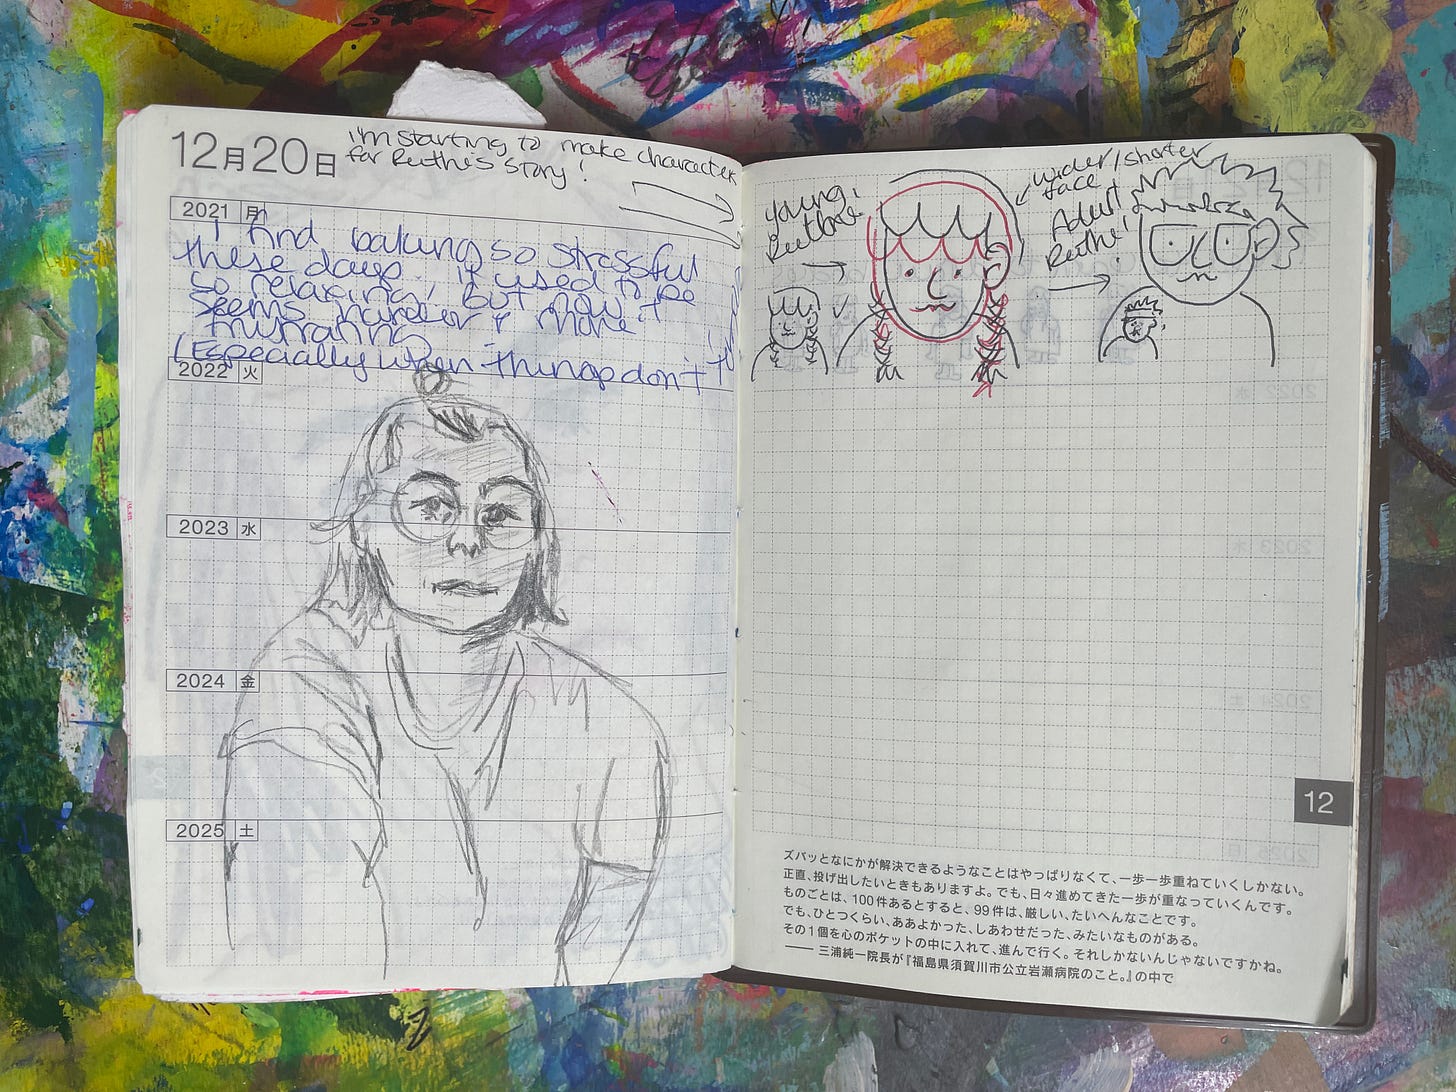 12月20日
I'm starting to make character
for Ruthie's story!
2021 月
I find baking so stressful
these days. it used to be
so relaxing, but now it
seems harder & more
(Especially when things don't
2022 火
2023 水
2024 金
2025 土
young
wider/shorter
face
Adult
Ruthie!
12
ズバッとなにかが解決できるようなことはやっぱりなくて、一歩一歩重ねていくしかない。
正直、投げ出したいときもありますよ。でも、日々進めてきた一歩が重なっていくんです。
ものごとは、100件あるとすると、99件は、厳しい、たいへんなことです。
でも、ひとつくらい、ああよかった、しあわせだった、みたいなものがある。
その1個を心のポケットの中に入れて、進んで行く。それしかないんじゃないですかね。
── 三浦純一院長が『福島県須賀川市公立岩瀬病院のこと。』の中で